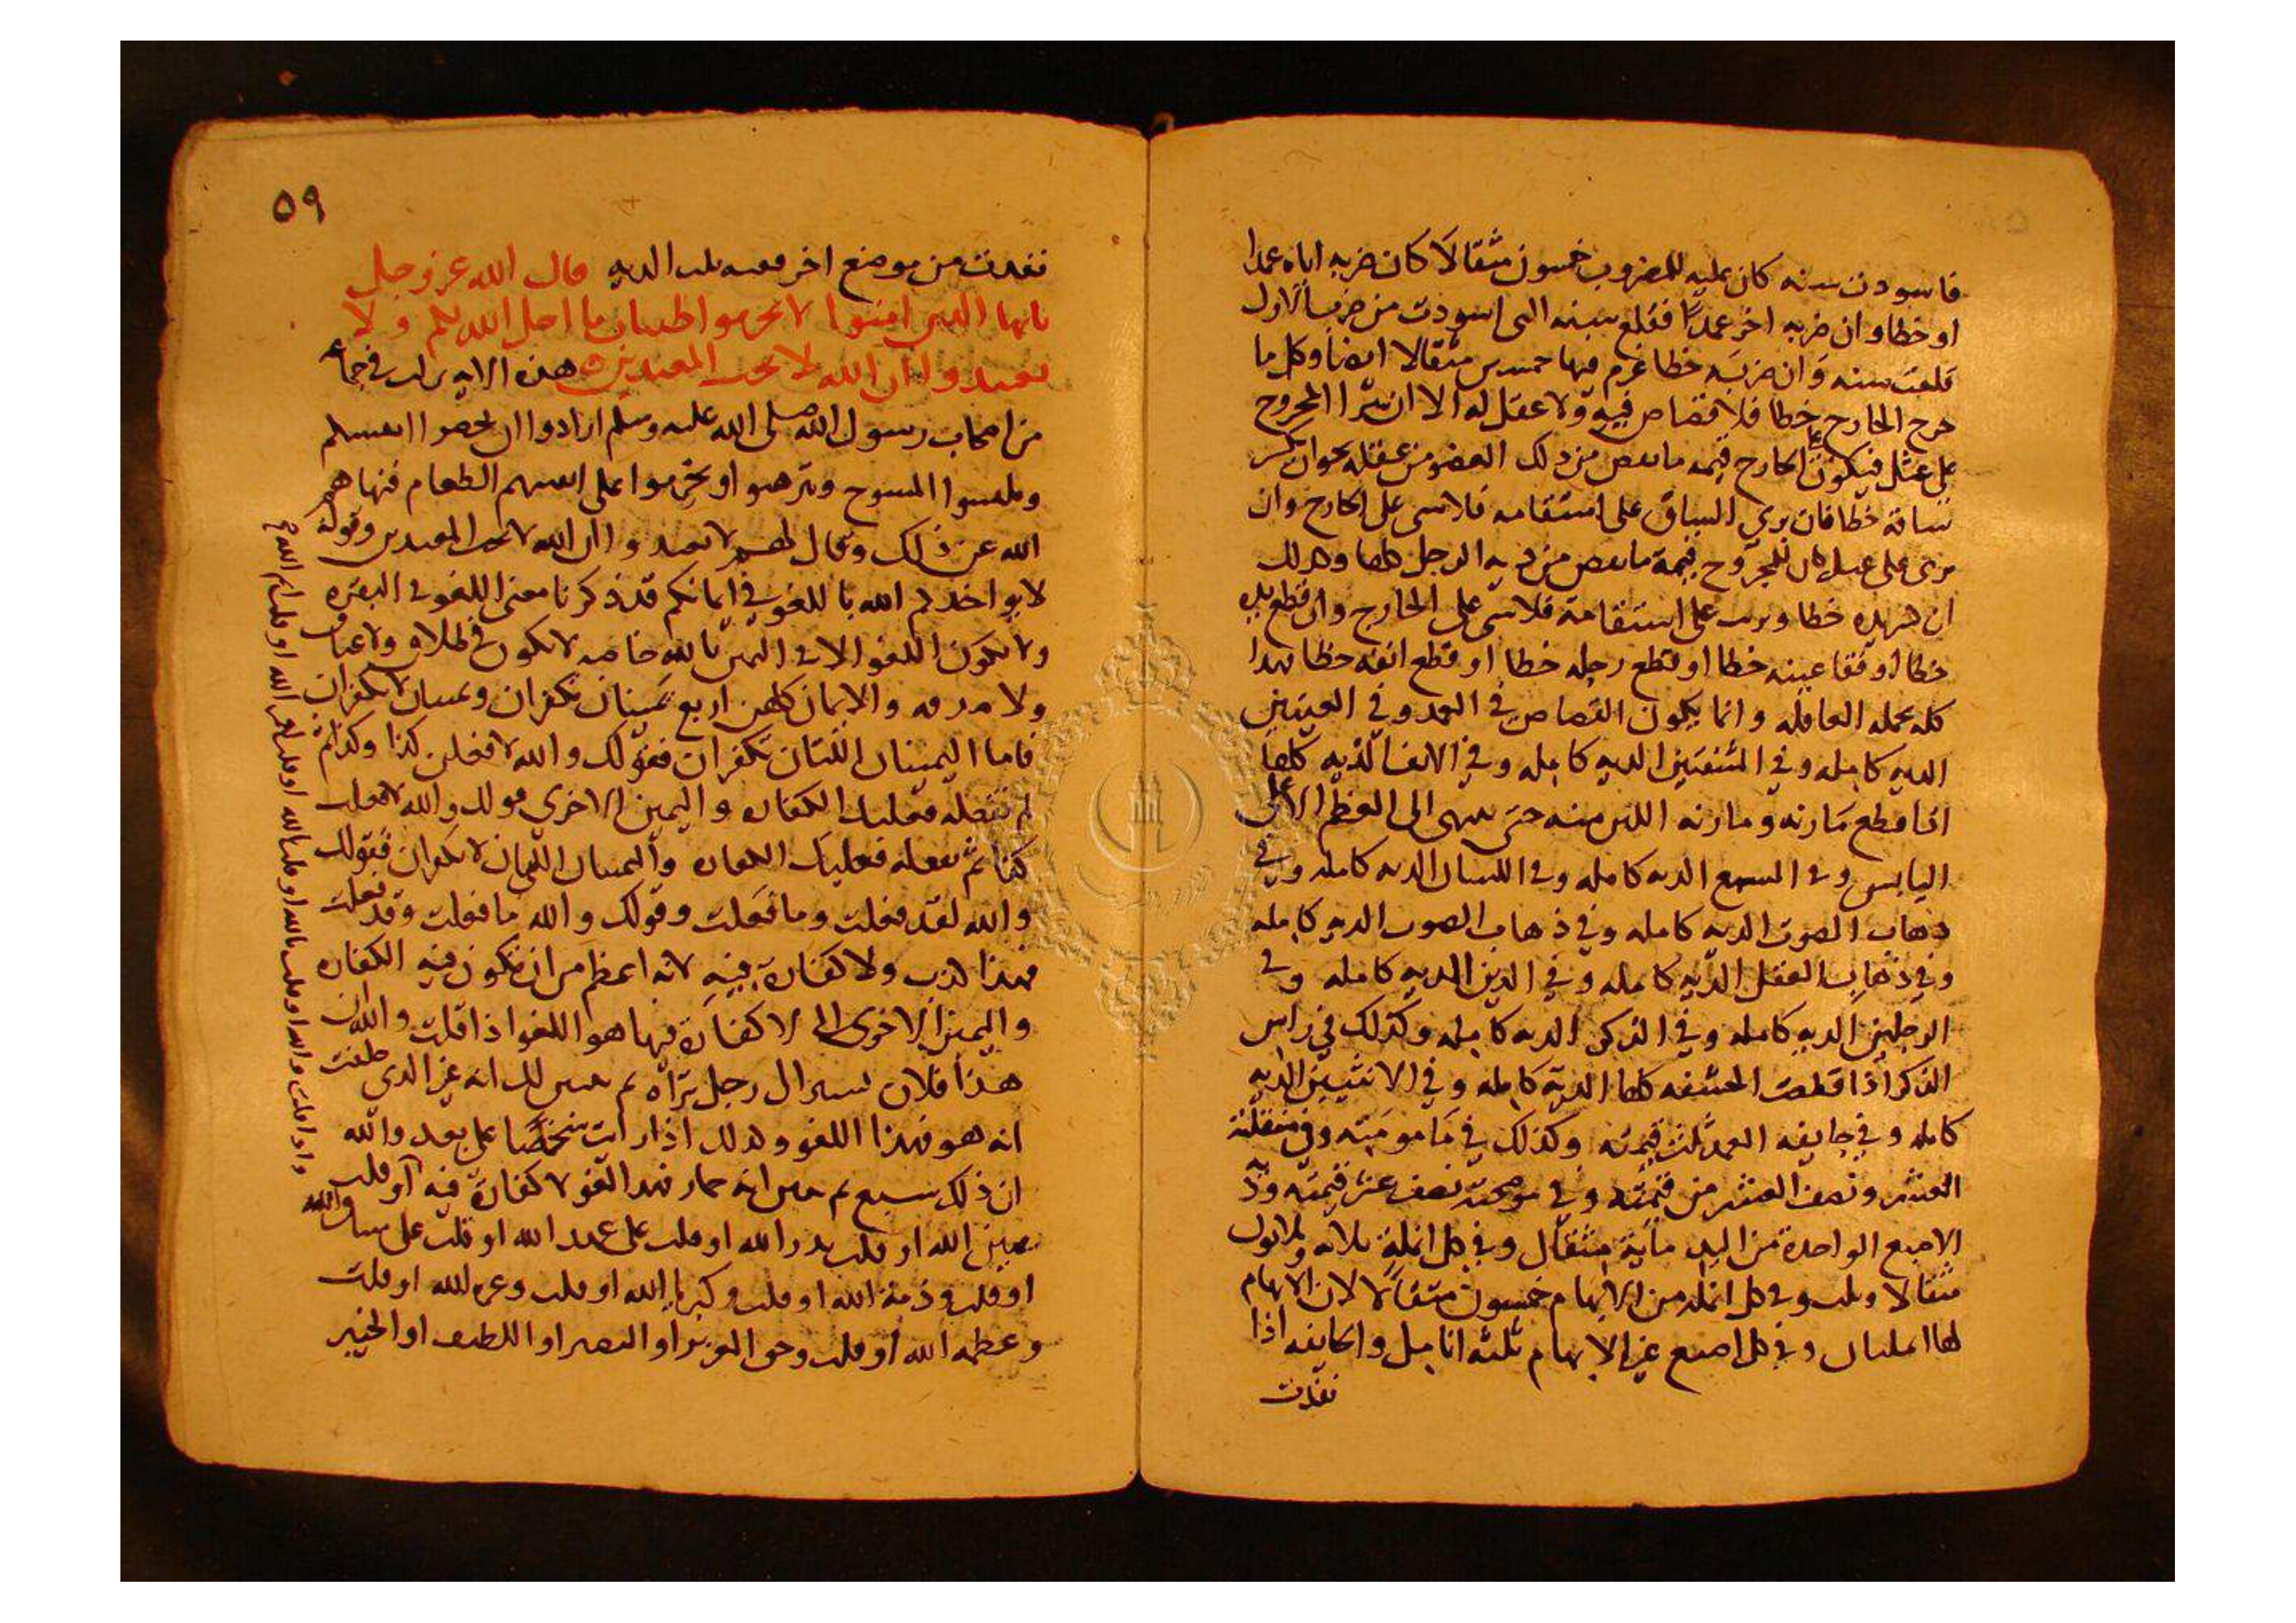 فاسودت سنه كان عليه للمضروب خمسون مثقالا كان ضربه اياه عمدا
او خطا وان ضربه اخر عمدًا فقلع سنه التى اسودت من ضرب الاول
قلعت سنه وان ضربه خطا غرم فيها خمسين مثقالا ايضا وكل ما
جرح الجارح خطا فلا قصاص فيه ولا عقل له الا ان يبرا المجروح
على عثل فيكون على الجارح قيمه ما نقص من ذلك العضو من عقله نحو ان كسر
ساقه خطا فان برى الساق على استقامه فلا شى على الجارح وان
برى على عثل كان للمجروح قيمة ما نقص من ديه الرجل كلها وكذلك
ان كسر يده خطا وبريت على استقامة فلا شى على الجارح وان قطع يده
خطا او فقا عينه خطا او قطع رجله خطا او قطع انفه خطا فهذا
كله تحمله العاقله وانما يكون القصاص فى العمد وفى العينين
الديه كامله وفى الشفتين الديه كامله وفى الانف الديه كلها
اذا قطع مارنه ومارنه اللين منه حتى ينتهى الى العظم الاعلى
اليابس وفى السمع الديه كامله وفى اللسان الديه كامله وفى
ذهاب الصوت الديه كامله وفى ذهاب الصوب الديه كامله
وفى ذهاب العقل الديه كامله وفى اليدين الديه كامله وفى
الرجلين الديه كامله وفى الذكر الديه كامله وكذلك فى راس
الذكر اذا قطعت الحشفه كلها الدية كامله وفى الانثيين الديه
كامله وفى جايفه العبد ثلث قيمته وكذلك فى مامومته وفى منقلته
العشر ونصف العشر من قيمته وفى موضحته نصف عشر قيمته ودية
الاصبع الواحدة من اليد ماية مثقال وفى كل انملة ثلاثه وثلاثون
مثقالا وثلث وفى كل انمله من الابهام خمسون مثقالا لان الابهام
لها انملتان وفى كل اصبع غير الابهام ثلثه انامل والجايفه اذا
نفذت
٥٩
نفذت من موضع اخر ففيه ثلث الديه قال الله عز وجل
يايها الذين امنوا لا تحرموا طيبات ما احل الله لكم ولا
تعتدوا ان الله لا يحب المعتدين هذه الايه نزلت فى جماعه
من اصحاب رسول الله صلى الله عليه وسلم ارادوا ان يخصوا انفسهم
ويلبسوا المسوح ويترهبوا ويحرموا على انفسهم الطعام فنهاهم
الله عن ذلك وقال لهم لا تعتدوا ان الله لا يحب المعتدين وقوله
لا يواخذكم الله باللغو فى ايمانكم قد ذكرنا معنى اللغو فى البقره
ولا يكون اللغو الا فى اليمين بالله خاصه لا يكون فى طلاق ولا عتاق
ولا صدقه والايمان كلهن اربع يمينان تكفران ويمينان لا تكفران
فاما اليمينان اللتان تكفران فقولك والله لافعلن كذا وكذا ثم
لم تفعله فعليك الكفاره واليمين الاخرى قولك والله لا فعلت
كذا ثم تفعله فعليك الكفاره واليمينان اللتان لا تكفران فقولك
والله لقد فعلت وما فعلت وقولك والله ما فعلت وقد فعلت
فهذا كذب ولا كفارة فيه لانه اعظم من ان تكون فيه الكفاره
واليمين الاخرى التى لا كفارة فيها هو اللغو اذا قلت والله ان
هذا فلان لرجل تراه ثم تبين لك انه غير الذى حلفت
انه هو فهذا اللغو وكذلك اذا رايت شخصًا على بعد والله
ان ذلك سبع ثم تبين انه حمار فهذا لغو لا كفارة فيه او قلت
يمين الله او قلت بدر الله او قلت على عهد الله او قلت على ميثاق الله
او قلت وذمة الله او قلت وكبريا الله او قلت وعزه الله او قلت
وعظمه الله او قلت وحق العزيز او البصير او اللطيف او الخبير